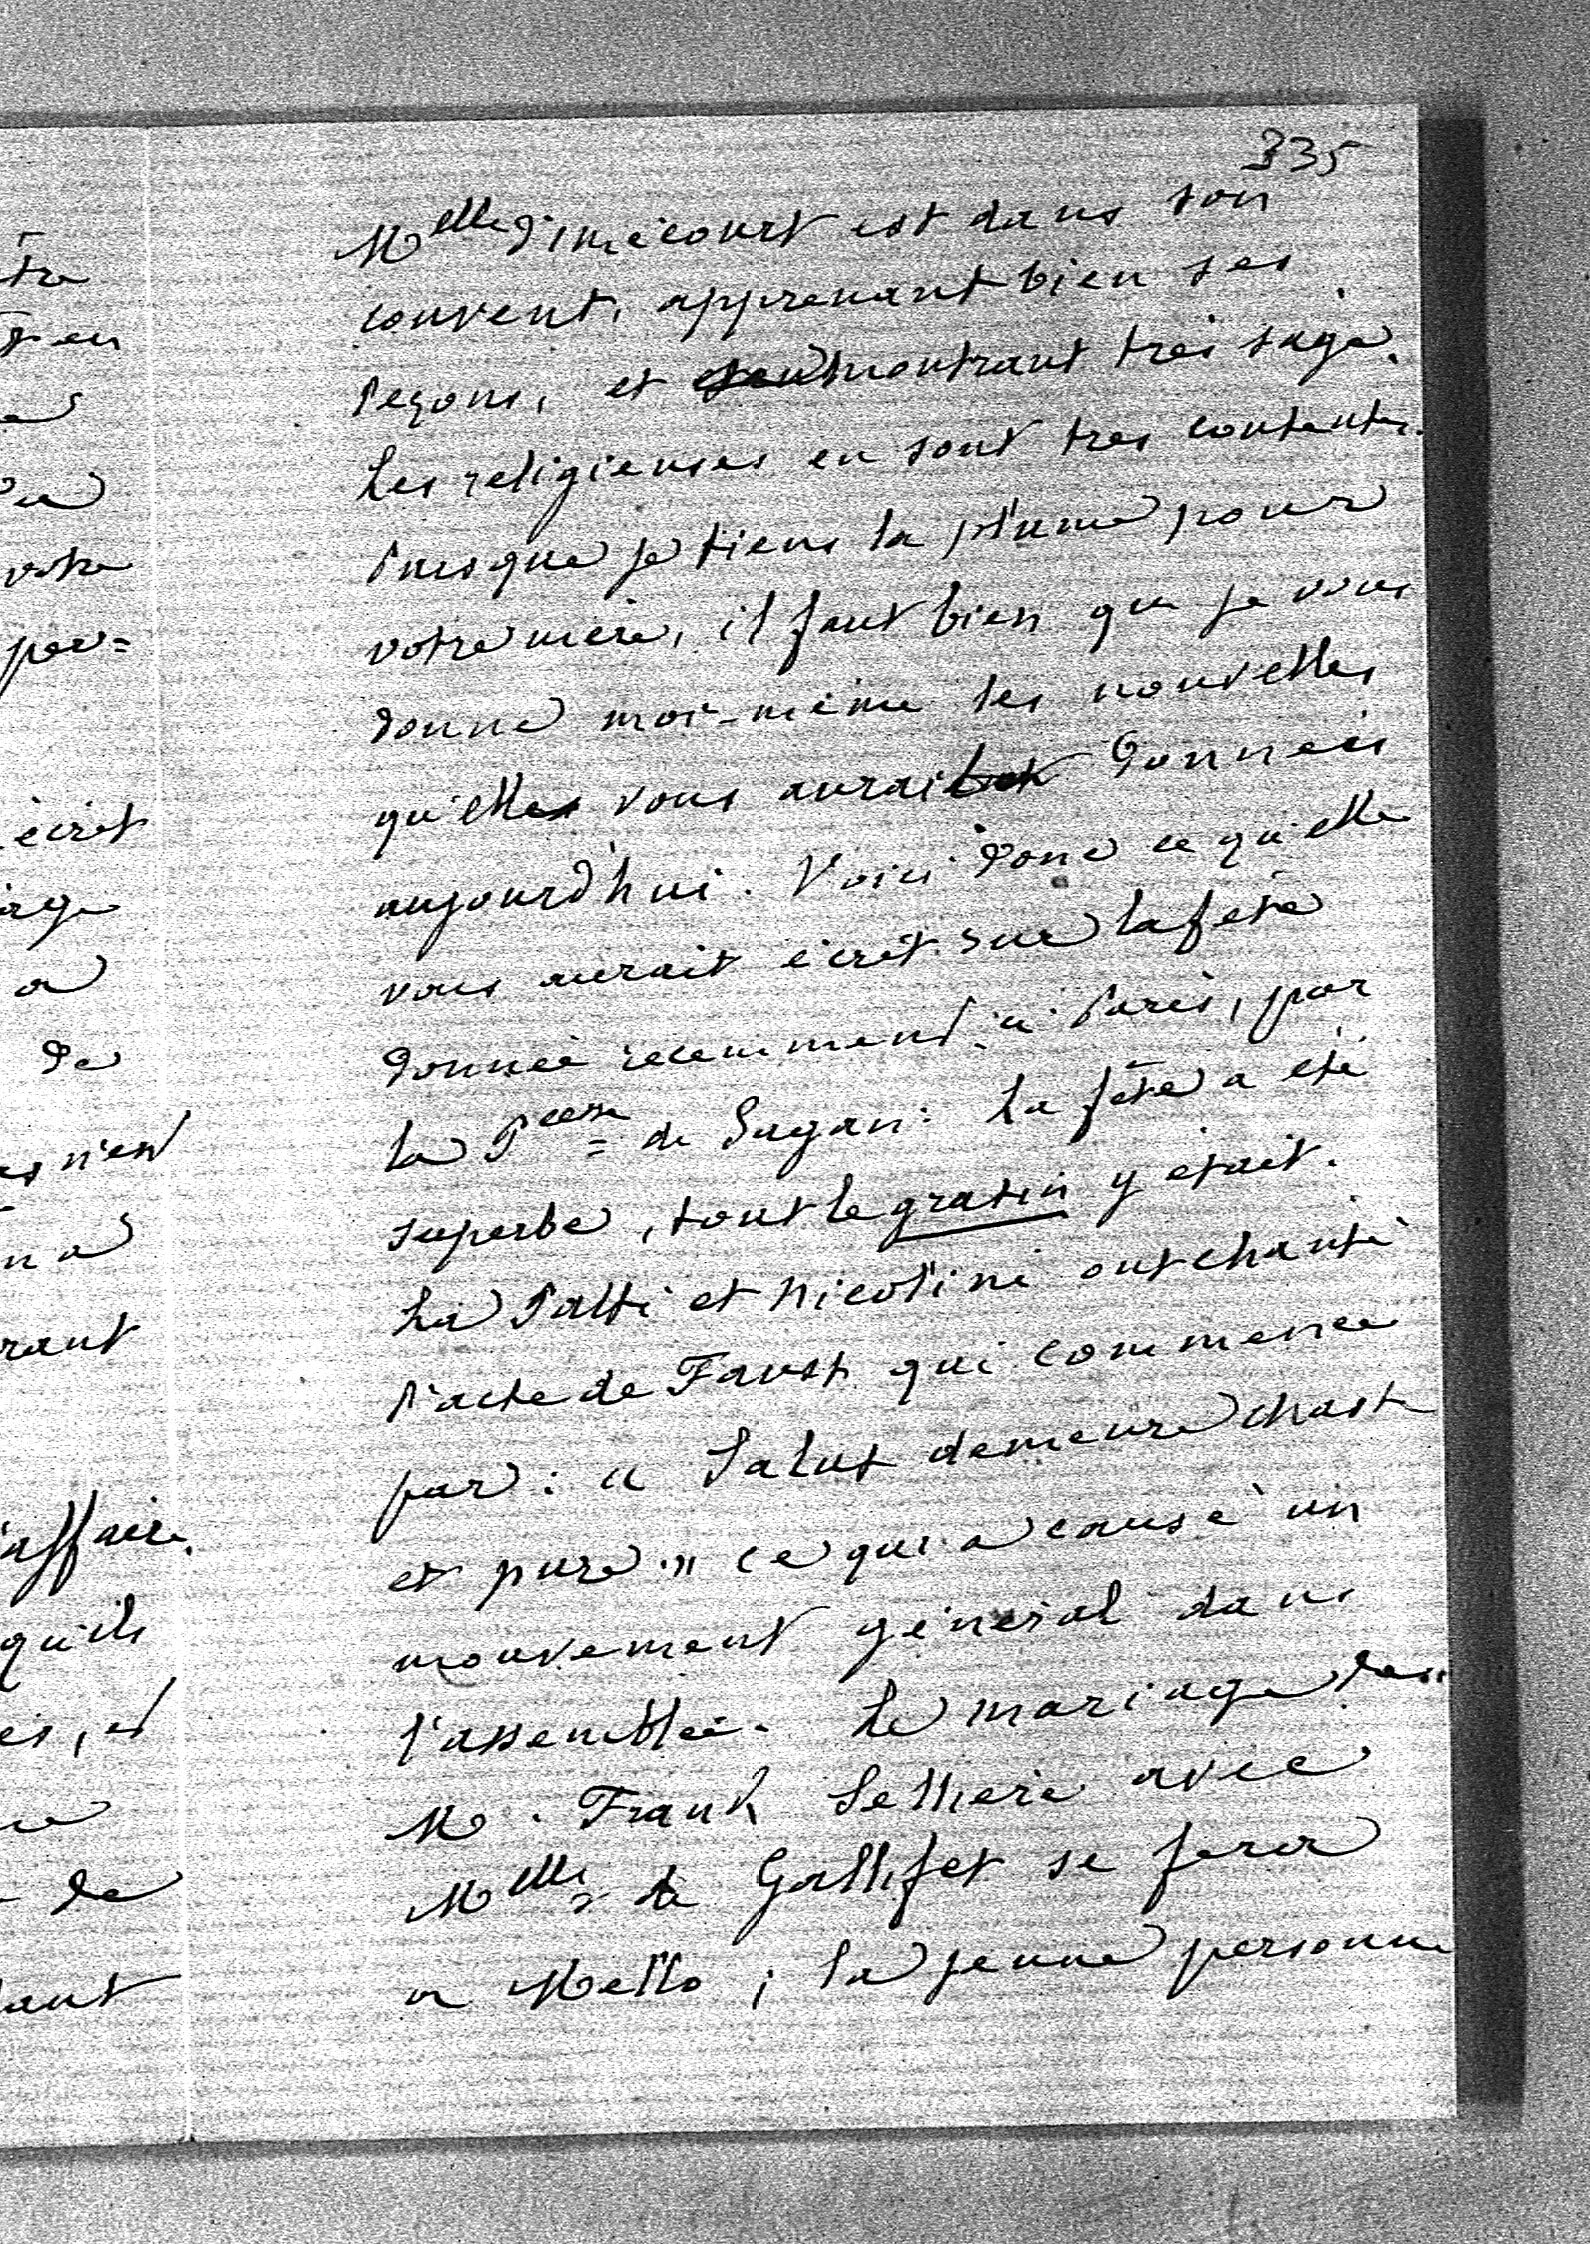 335
M<sup>elle</sup> d'imécourt est dans son
couvent, apprenant bien ses
leçons, et montrant très sage.
Les religieuses en sont très contentes.
Puisque je tiens la plume pour
votre mère, il faut bien que je vous
donne moi-même les nouvelles
qu'elle vous aurait données
aujourd'hui. Voici donc ce qu'elle
vous aurait écrit sur la fête
donnée recemment à Paris, par
la P<sup>cesse</sup> de Sagan: La fête a été
superbe, tout le gratin y était.
La Patti et Nicolini ont chanté
l'acte de Faust qui commence
par: « Salut demeure chaste
et pure » ce qui a causé un
mouvement général dans
l'assemblée. Le mariage de
M. Frank Sellière avec
M<sup>elle</sup> de Gallifet se fera
a Mello; la jeune personne
tra
en
votre
pou=
écrit
a
de
n'est
rant
affaire.
qu'ils
de